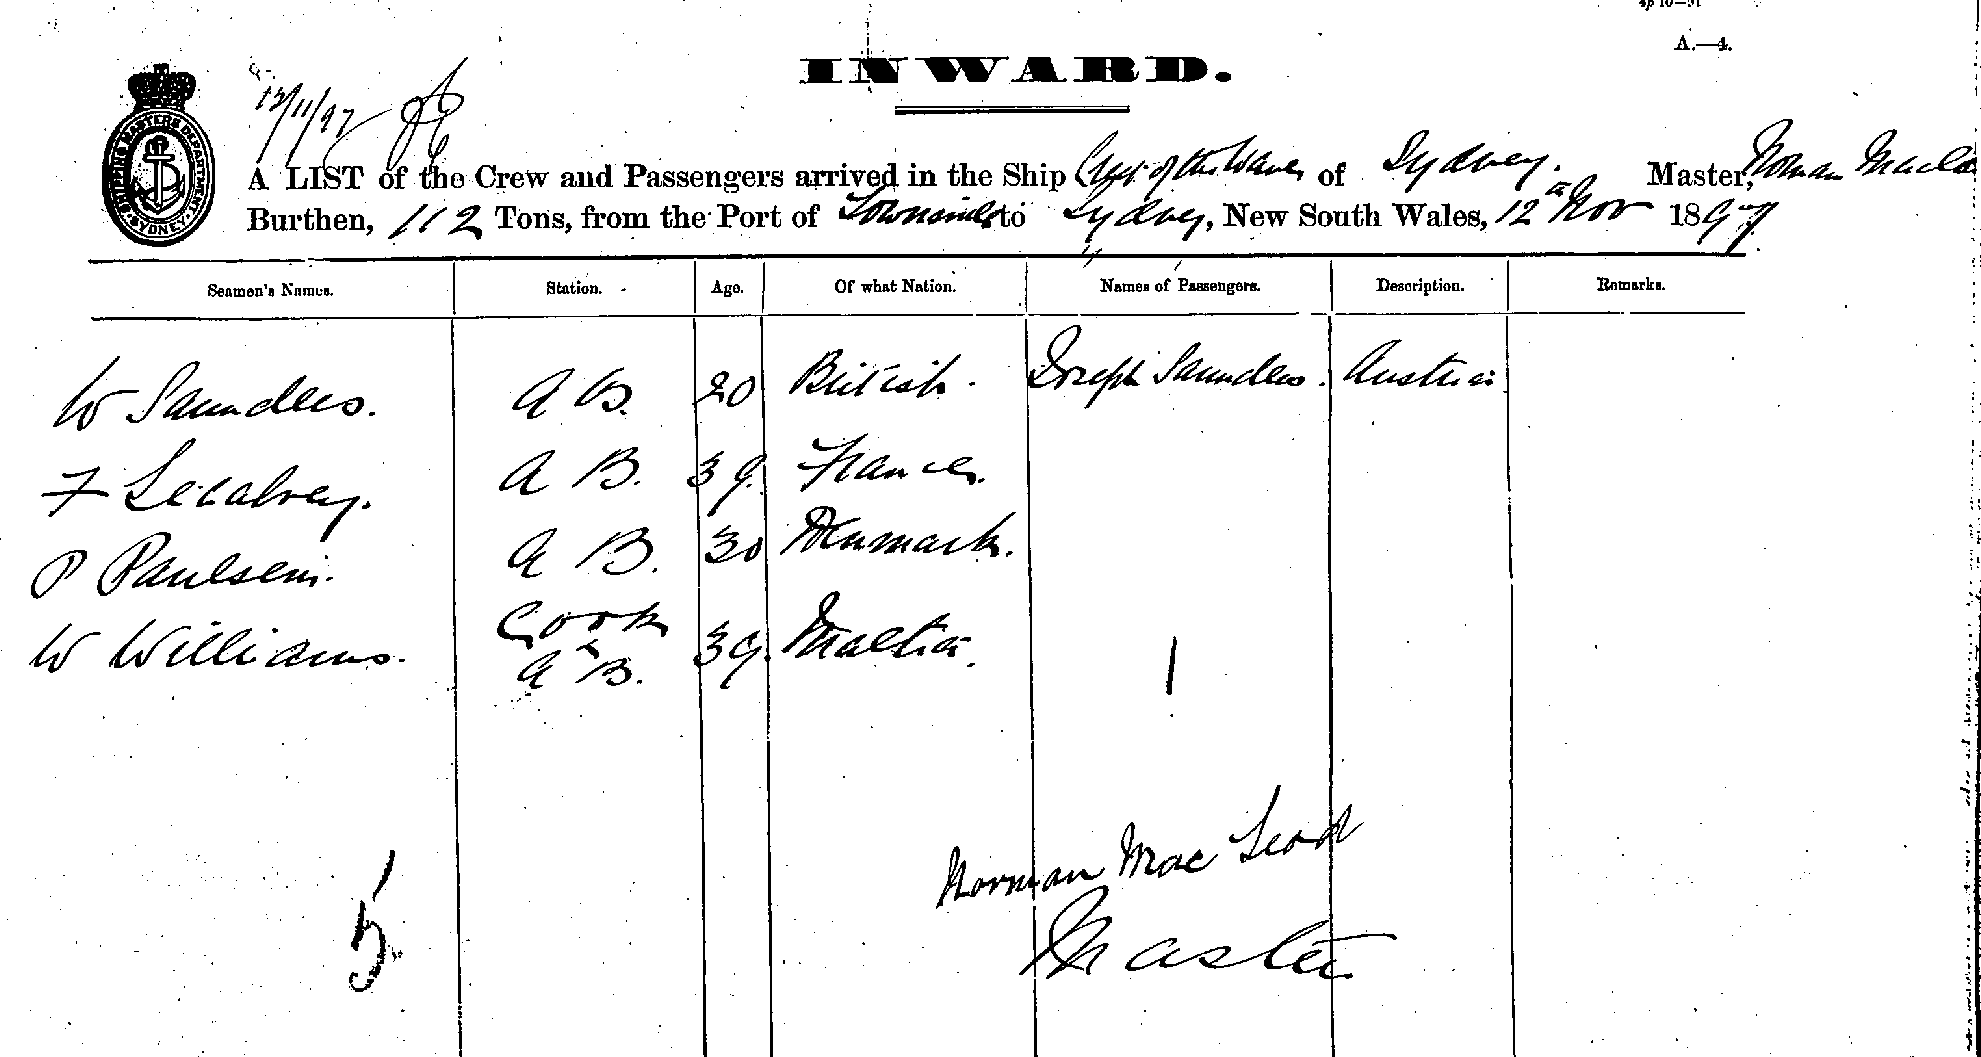 A.—4.
INWARD.
12/11/97
SHIPPING MASTERS DEPARTMENT SYDNEY
A LIST of the Crew and Passengers arrived in the Ship of the Waves of Sydney. Master, Norman
Burthen, 112 Tons, from the Port of to Sydney, New South Wales, 12th Nov 1897
Seamen's Names. Station. Age. Of what Nation. Names of Passengers. Description. Remarks.
W Saunders. A B. 20 British. Joseph Saunders. Austria
F A B. 39. France.
P Paulsem. A B. 30 Denmark.
W Williams. Cook & A B. 39. Malta.
1
5
Norman Mac Leod
Master